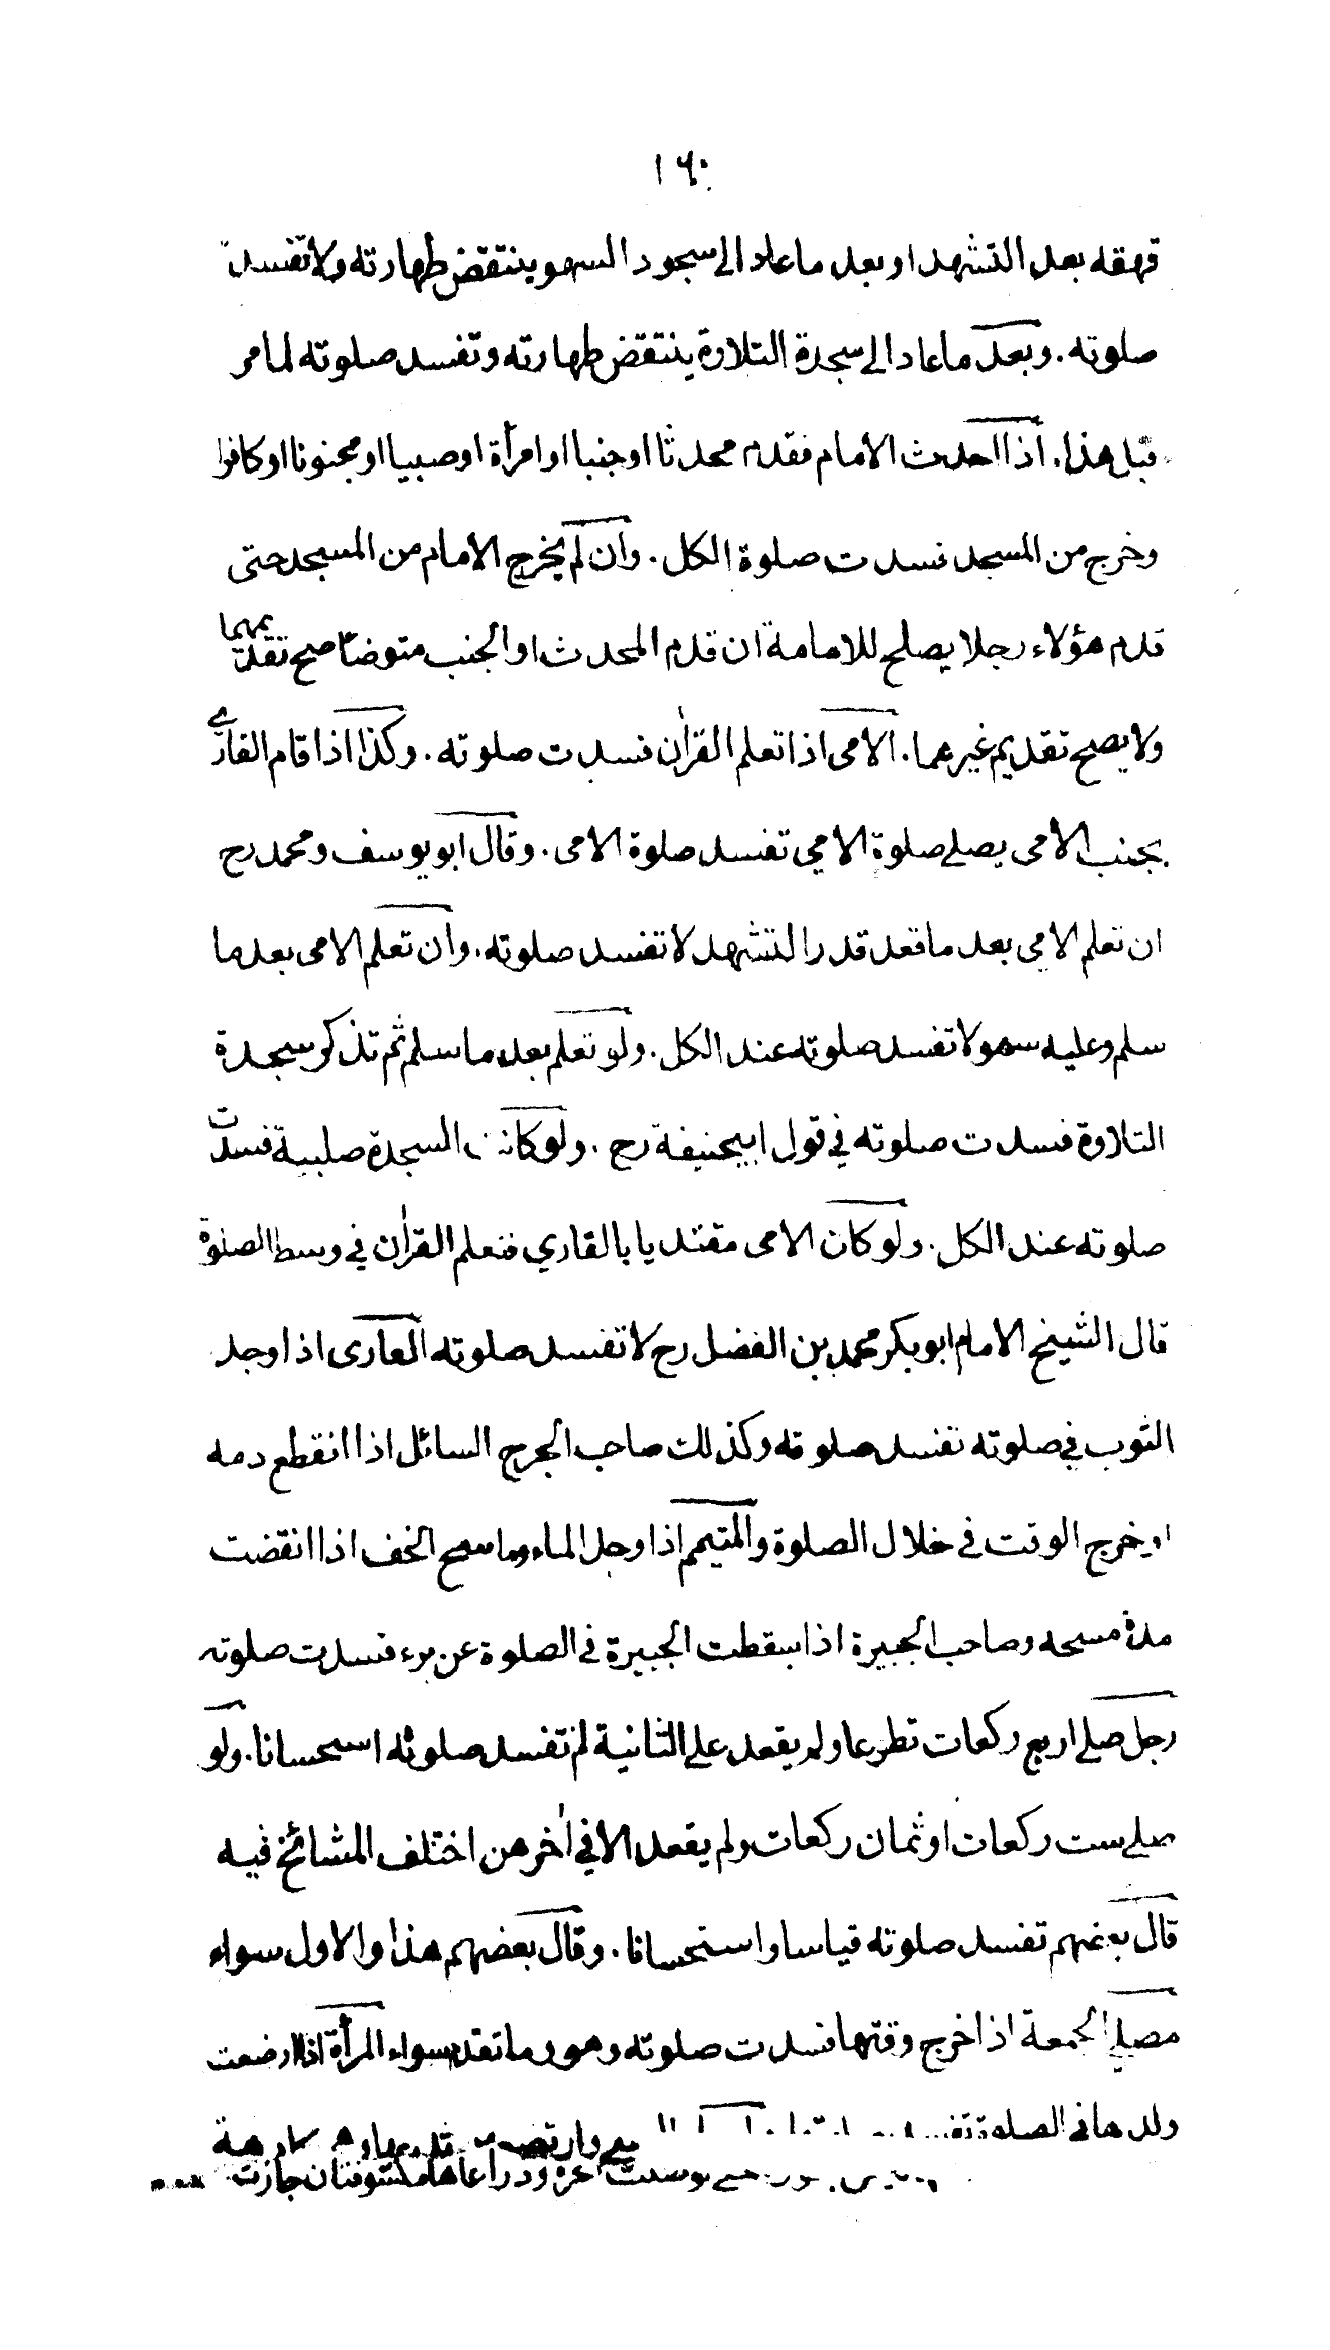 ١٦٠
قهقه بعد التشهد او بعد ما عاد الى سجود السهو ينتقض طهارته ولا تفسد
صلوته . وبعد ما عاد الى سجدة التلاوة ينتقض طهارته وتفسد صلوته لما مر
قبل هذا . اذا احدث الامام فقدم محدثا او جنبا او امرأة او صبيا او مجنونا او كافرا
وخرج من المسجد فسدت صلوة الكل . وان لم يخرج الامام من المسجد حتى
قدم هؤلاء رجلا يصلح للامامة ان قدم المحدث او الجنب متوضأ صح تقديمهما
ولا يصح تقديم غيرهما . الامى اذا تعلم القرآن فسدت صلوته . وكذا اذا قام القارى
بجنب الامى يصلى صلوة الامي تفسد صلوة الامى . وقال ابو يوسف ومحمد رح
ان تعلم الامي بعد ما قعد قدر التشهد لا تفسد صلوته . وان تعلم الامى بعد ما
سلم وعليه سهو لا تفسد صلوته عند الكل . ولو تعلم بعد ما سلم ثم تذكر سجدة
التلاوة فسدت صلوته في قول ابيحنيفة رح . ولو كانت السجدة صلبية فسدت
صلوته عند الكل . ولو كان الامى مقتديا بالقاري فتعلم القرآن في وسط الصلوة
قال الشيخ الامام ابو بكر محمد بن الفضل رح لا تفسد صلوته العارى اذا وجد
الثوب في صلوته تفسد صلوته وكذلك صاحب الجرح السائل اذا انقطع دمه
او خرج الوقت في خلال الصلوة والمتيمم اذا وجد الماء وماسح الخف اذا انقضت
مدة مسحه وصاحب الجبيرة اذا سقطت الجبيرة في الصلوة عن برء فسدت صلوته
رجل صلى اربع ركعات تطوعا ولم يقعد على الثانية لم تفسد صلوته استحسانا . ولو
صلى ست ركعات او ثمان ركعات ولم يقعد الا في آخرهن اختلف المشائخ فيه
قال بعضهم تفسد صلوته قياسا واستحسانا . وقال بعضهم هذا والاول سواء
مصلى الجمعة اذا خرج وقتها فسدت صلوته وهو وما تقدم سواء المرأة اذا ارضعت
ولدها في الصلوة تفسد